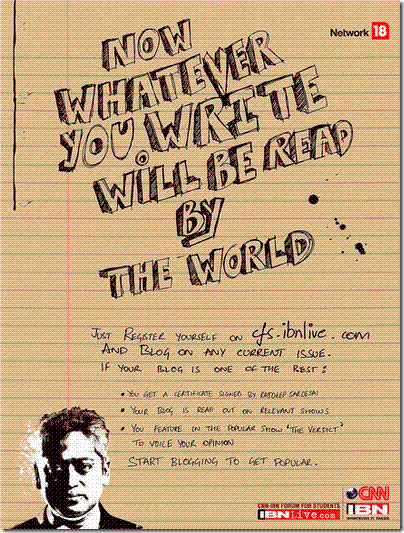 Network 18
NOW
WHATEVER
YOU WRITE
WILL BE READ
BY
THE WORLD
JUST REGISTER YOURSELF ON cfs.ibnlive.com
AND BLOG ON ANY CURRENT ISSUE.
IF YOUR BLOG IS ONE OF THE BEST:
• YOU GET A CERTIFICATE SIGNED BY RAJDEEP SARDESAI
• YOUR BLOG IS READ OUT ON RELEVANT SHOWS
• YOU FEATURE IN THE POPULAR SHOW 'THE VERDICT'
TO VOICE YOUR OPINION
START BLOGGING TO GET POPULAR.
CNN-IBN FORUM FOR STUDENTS
IBNLive.com
CNN
IBN
WHATEVER IT TAKES